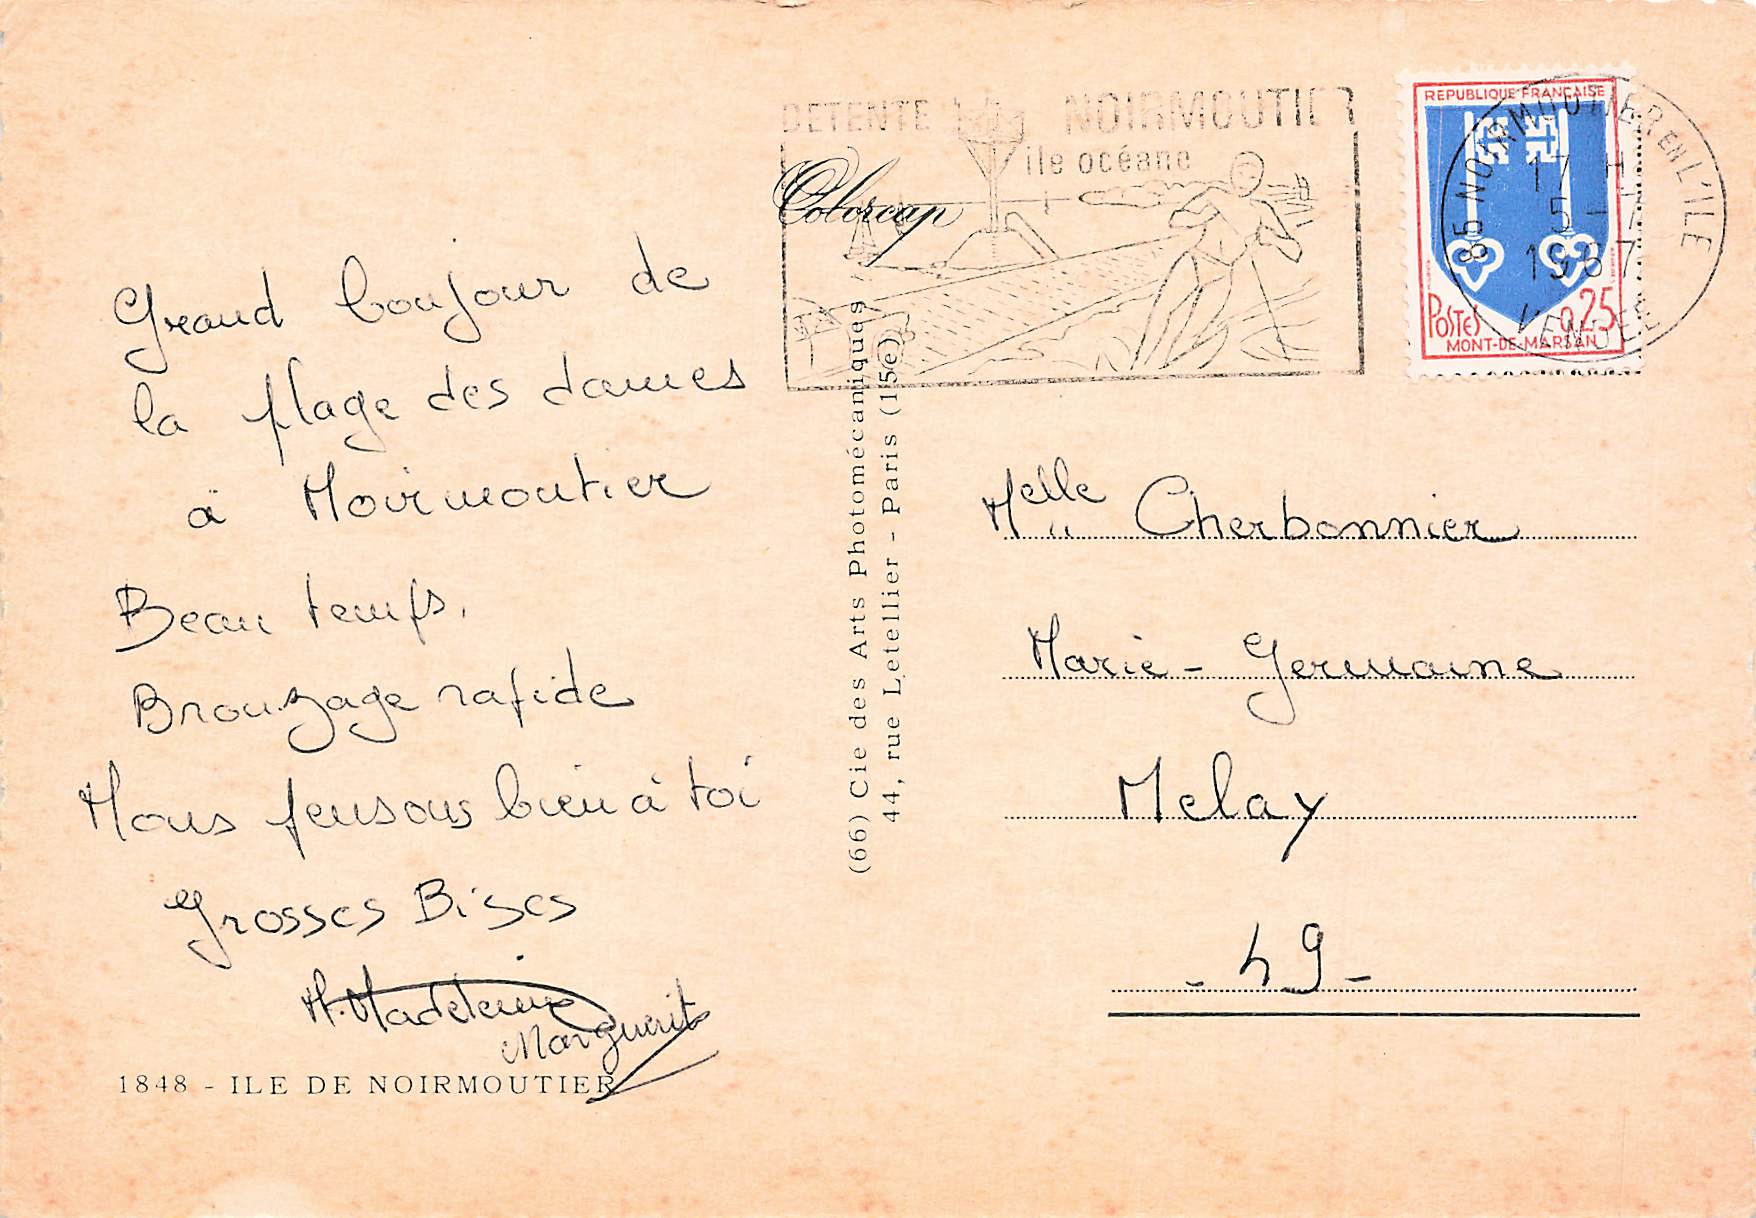 Grand boujour de
la plage des dames
à Noirmoutier
Beau temps,
Bronzage rapide
Nous pensons bien à toi
Grosses Bises
M. Madeleine
Marguerite
1848 - ILE DE NOIRMOUTIER
Colorcap
(66) Cie des Arts Photomécaniques
44, rue Letellier - Paris (15e)
DETENTE NOIRMOUTIER
ile océane
REPUBLIQUE FRANÇAISE
POSTES
0,25
MONT-DE-MARSAN
85 NOIRMOUTIER EN L'ILE
17 H
5-7
1967
VENDEE
Melle Cherbonnier
Marie-Germaine
Melay
- 49 -